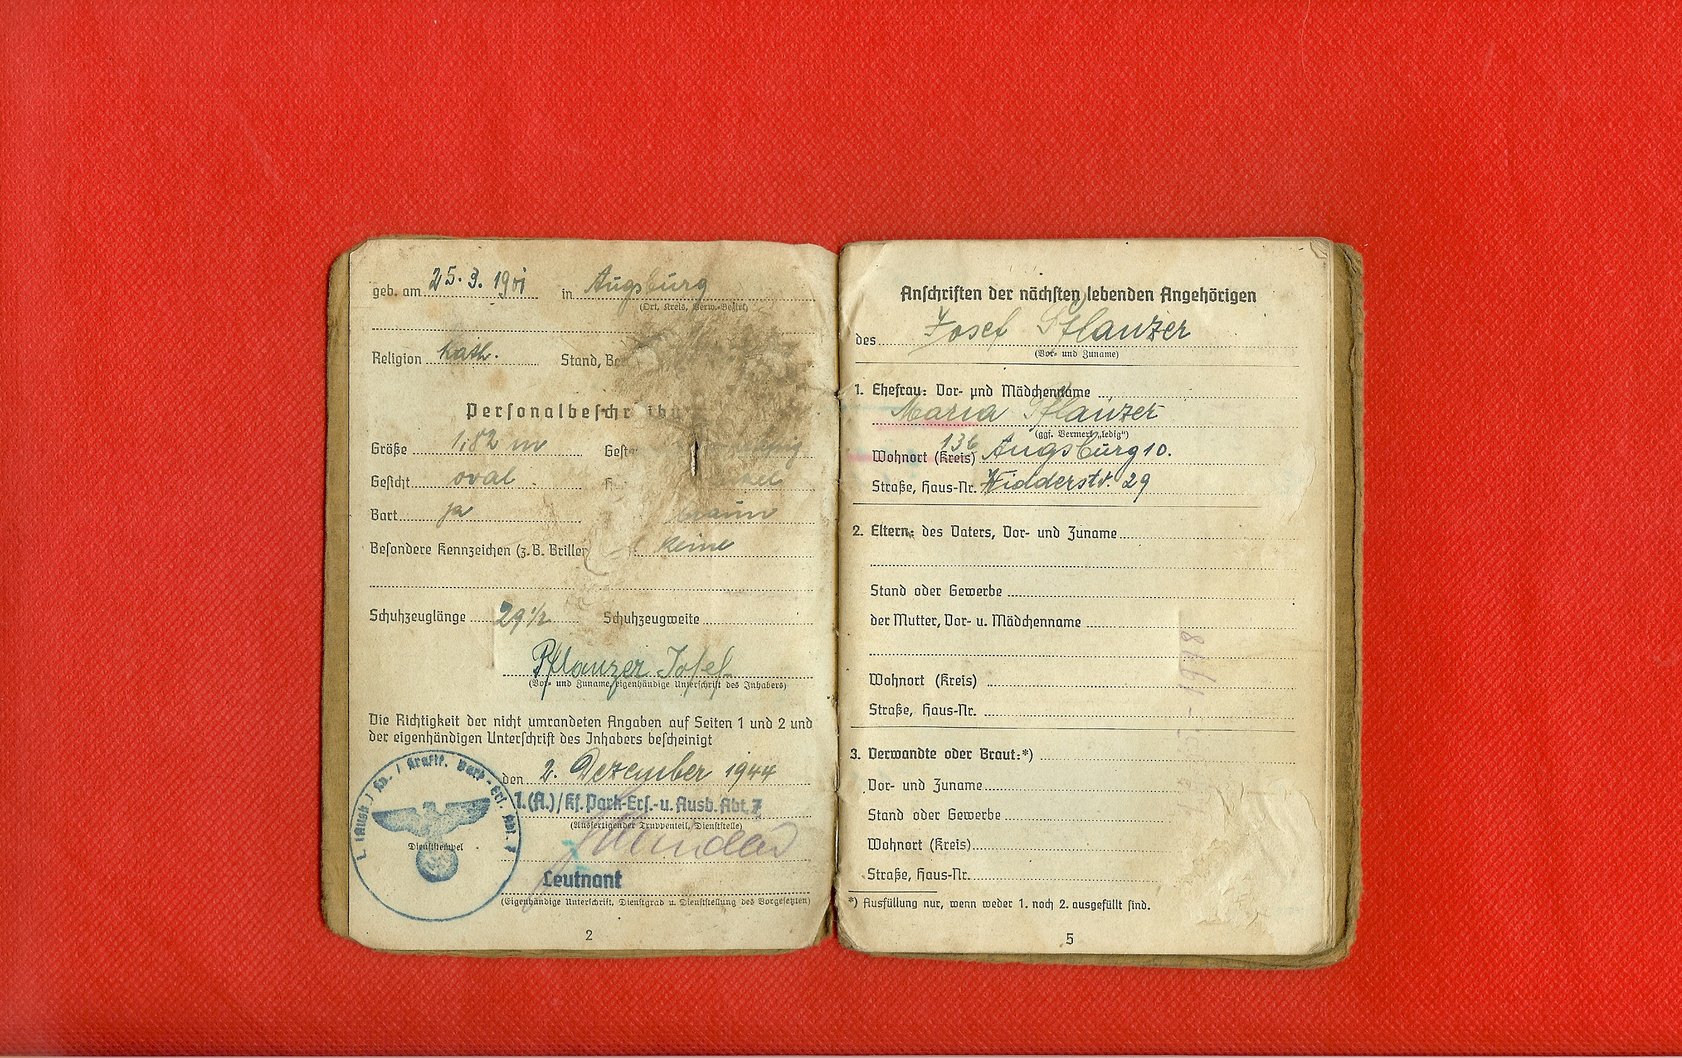 geb. am 25. 3. 1901 in Augsburg
(Ort, Kreis, Verw.-Bezirk)
Religion kath. Stand, Be
Personalbeschr ibu
Größe 1,82 m Gest
Gesicht oval
Bart ja braun
Besondere Kennzeichen (z.B. Briller keine
Schuhzeuglänge 29 1/2 Schuhzeugweite
Pflanzer Josef
(Vor- und Zuname, eigenhändige Unterschrift des Inhabers)
Die Richtigkeit der nicht umrandeten Angaben auf Seiten 1 und 2 und
der eigenhändigen Unterschrift des Inhabers bescheinigt
den 2. Dezember 1944
1.(A.)/Kf.Park-Ers.-u. Ausb. Abt. 7
(Ausfertigender Truppenteil, Dienststelle)
Dienststempel
Leutnant
(Eigenhändige Unterschrift, Dienstgrad u. Dienststellung des Vorgesetzten)
2
Anschriften der nächsten lebenden Angehörigen
des Josef Pflanzer
(Vor- und Zuname)
1. Ehefrau: Vor- und Mädchenname
Maria Pflanzer
(ggf. Vermerk „ledig")
136
Wohnort (Kreis) Augsburg 10.
Straße, Haus-Nr. Widderstr. 29
2. Eltern: des Vaters, Vor- und Zuname
Stand oder Gewerbe
der Mutter, Vor- u. Mädchenname
Wohnort (Kreis)
Straße, Haus-Nr.
3. Verwandte oder Braut:*)
Vor- und Zuname
Stand oder Gewerbe
Wohnort (Kreis)
Straße, Haus-Nr.
*) Ausfüllung nur, wenn weder 1. noch 2. ausgefüllt sind.
5